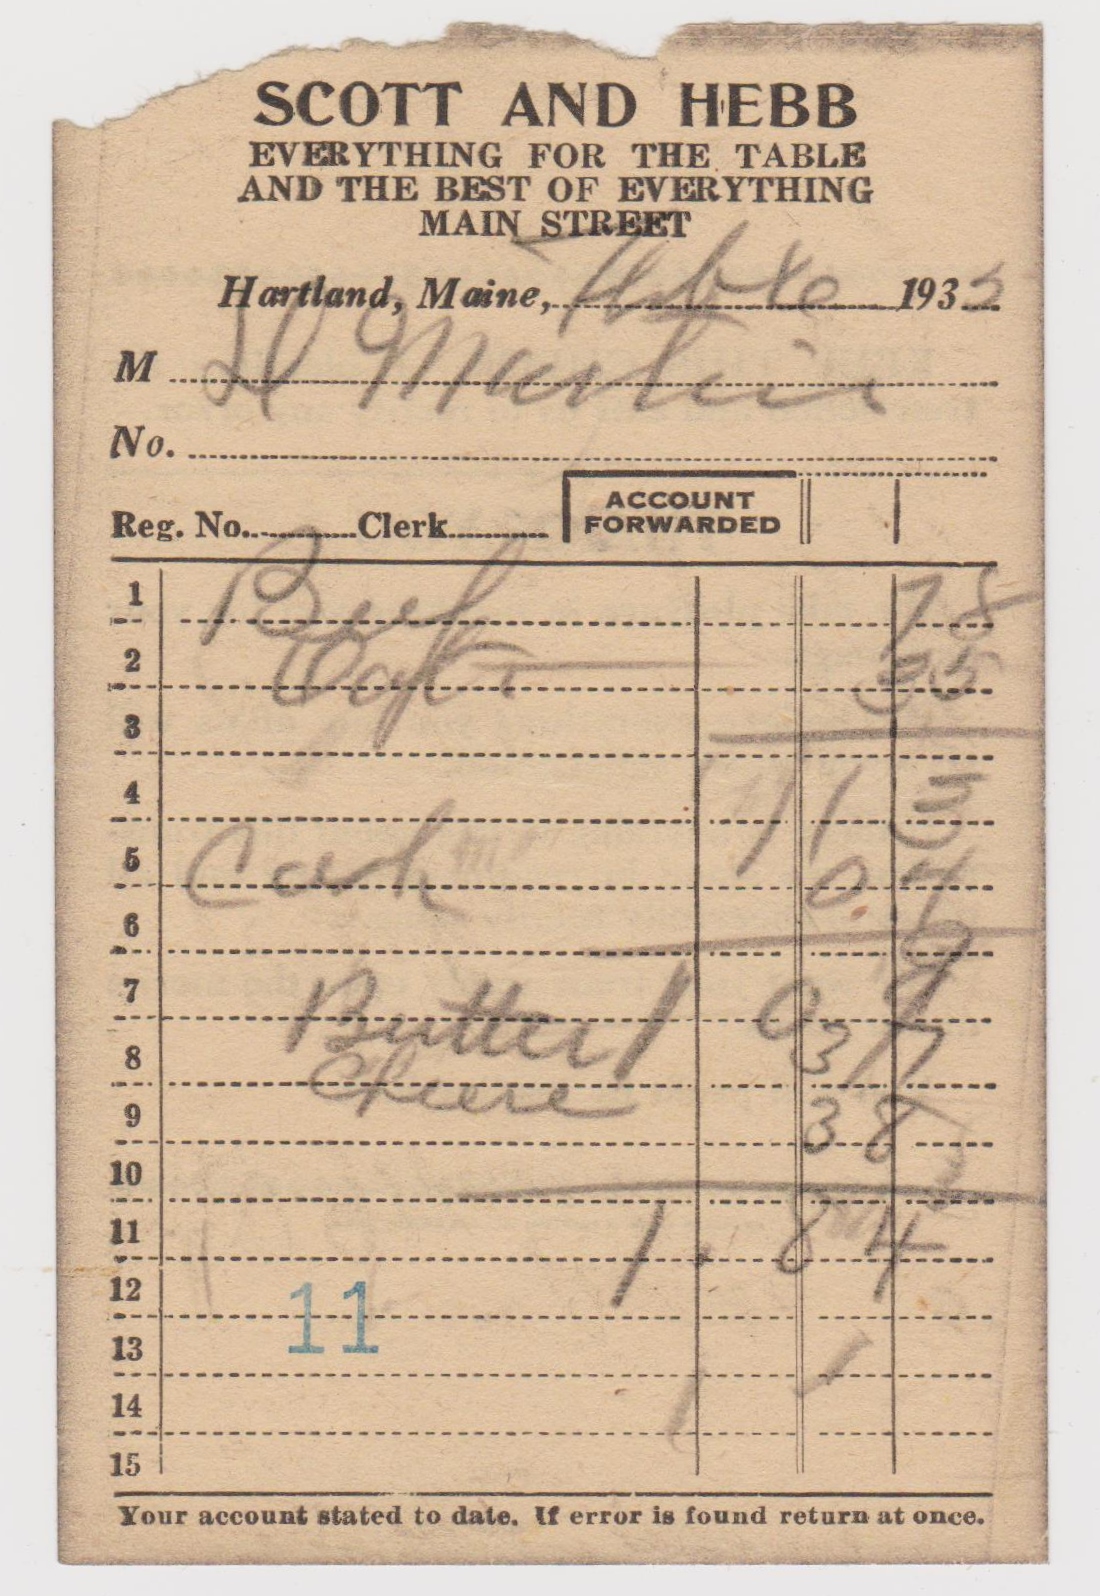 SCOTT AND HEBB
EVERYTHING FOR THE TABLE
AND THE BEST OF EVERYTHING
MAIN STREET
Hartland, Maine, 193
M Martin
No.
ACCOUNT
FORWARDED
Reg. No. Clerk
1 Beef 78
2 35
3
4 1 13
5 Cash 04
6
7 Butter 1 09
8 Cheese 37
9 38
10
11 1.84
12
11
13
14
15
Your account stated to date. If error is found return at once.